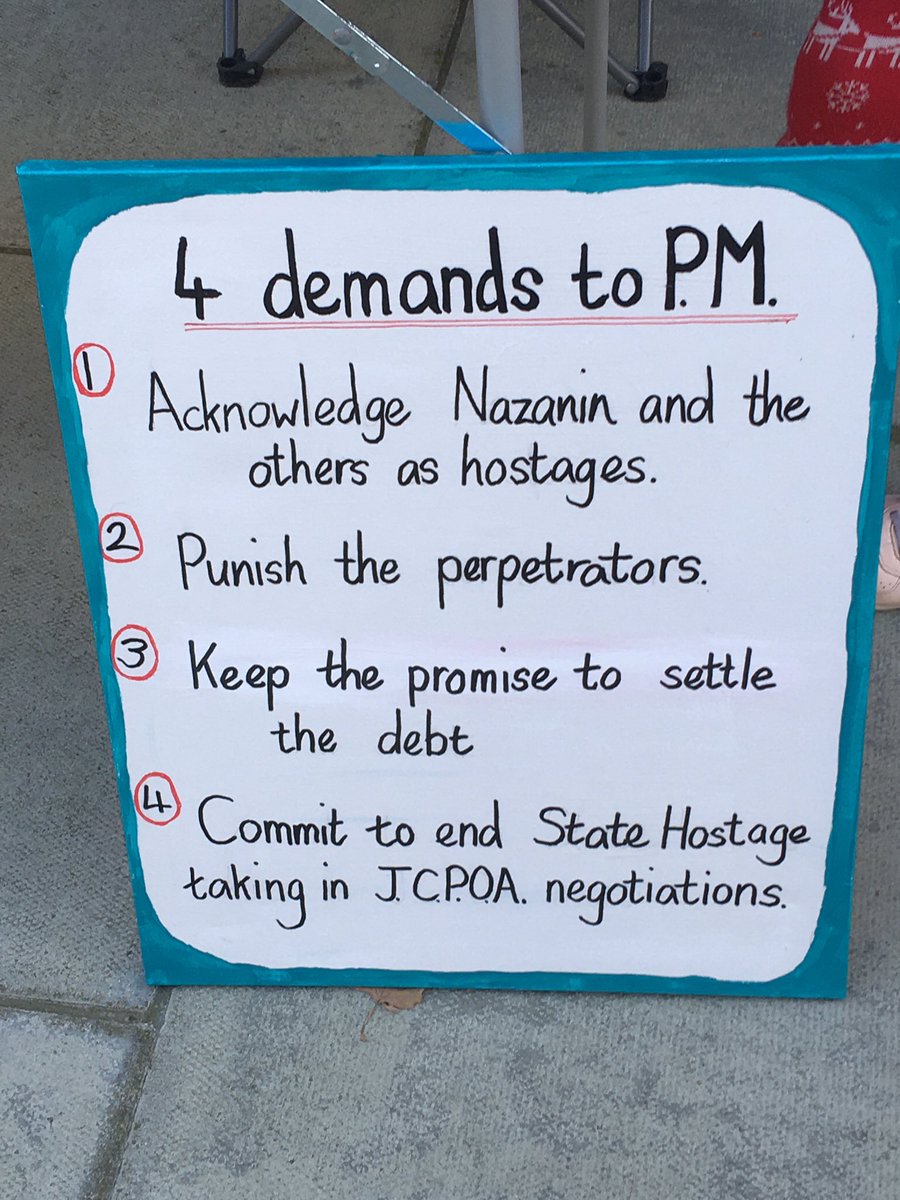 4 demands to P.M.
1
Acknowledge Nazanin and the
others as hostages.
2
Punish the perpetrators.
3
Keep the promise to settle
the debt
4
Commit to end State Hostage
taking in J.C.P.O.A. negotiations.